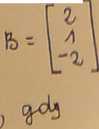 B = [2
1
-2]
, gdy